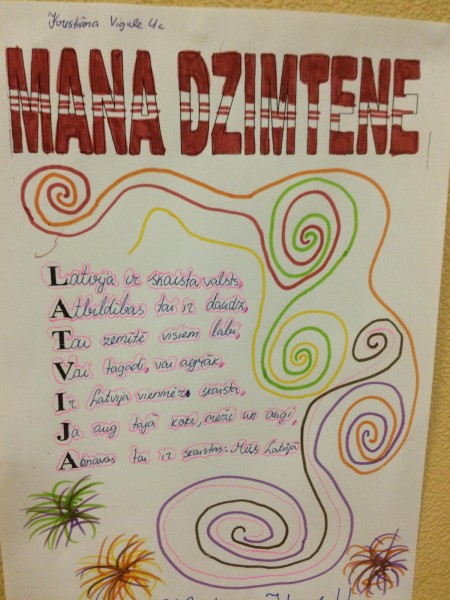 Kristiāna Vigule 4c
MANA DZIMTENE
Latvija ir skaista valsts,
Atbildības tai ir daudz,
Tau zemītē visiem labi,
Vai tagadi, vai agrāk,
Ir Latvija vienmēr skaista,
Ja aug tajā koki, meži un augi,
Aénavas tai ir skaistas: Mūs Latvijā